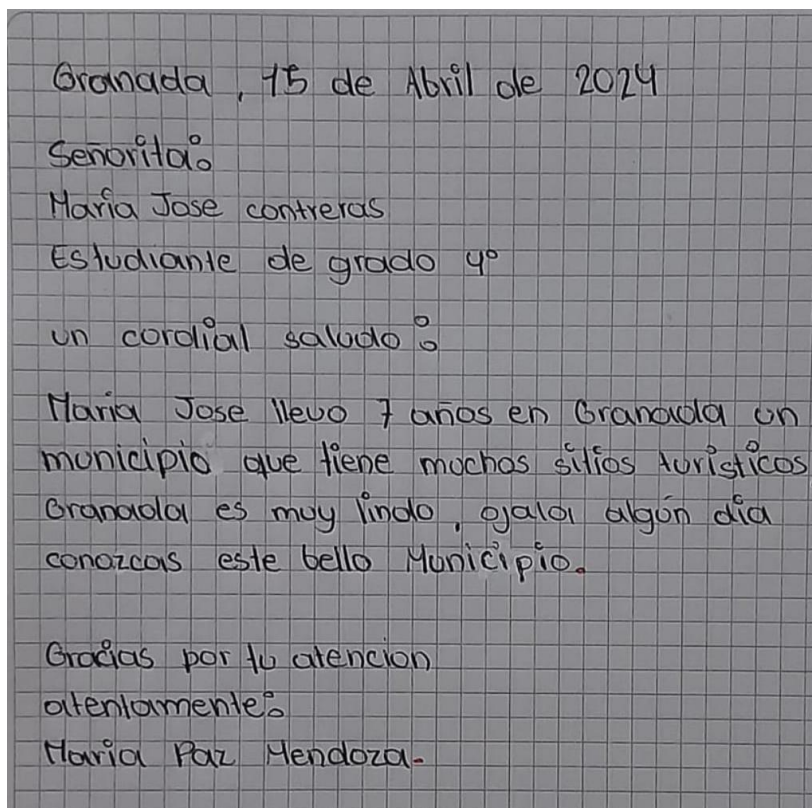 Granada, 15 de Abril de 2024
Señorita:
Maria Jose contreras
Estudiante de grado 4º
un cordial saludo:
Maria Jose llevo 7 años en Granada un
municipio que tiene muchos sitios turisticos
Granada es muy lindo, ojala algún día
conozcas este bello Municipio.
Gracias por tu atencion
atentamente:
Maria Paz Mendoza-